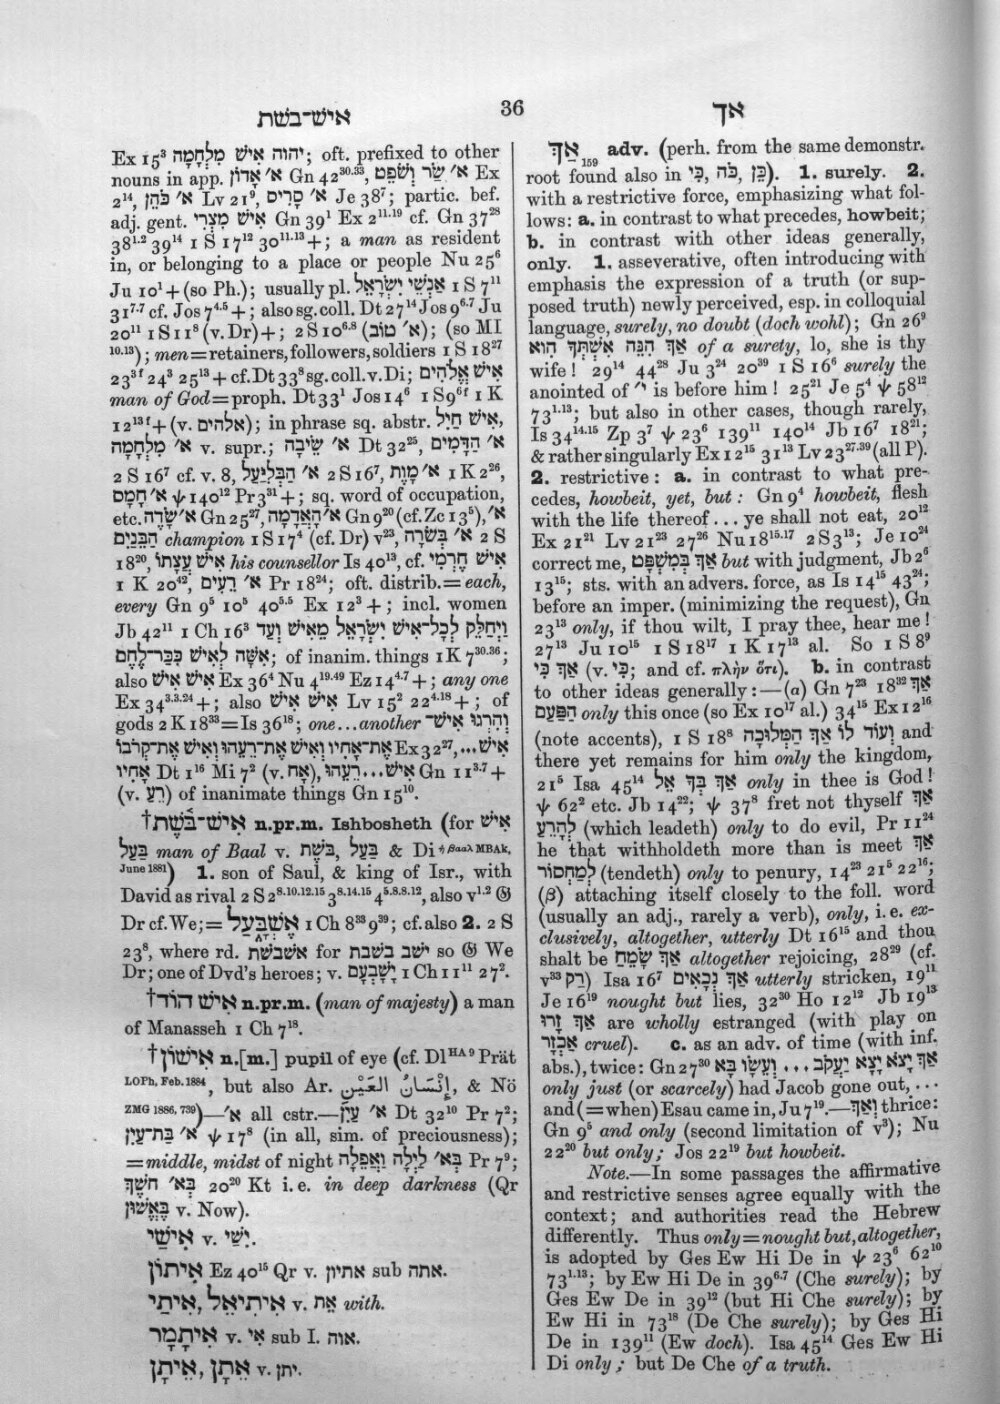 איש־בשת
36
אך
Ex 15³ יהוה אִישׁ מִלְחָמָה; oft. prefixed to other
nouns in app. א׳ אָדוֹן Gn 42³⁰·³³, א׳ שַׂר וְשֹׁפֵט Ex
2¹⁴, א׳ כֹּהֵן Lv 21⁹, א׳ סָרִים Je 38⁷; partic. bef.
adj. gent. אִישׁ מִצְרִי Gn 39¹ Ex 2¹¹·¹⁹ cf. Gn 37²⁸
38¹·² 39¹⁴ 1 S 17¹² 30¹¹·¹³ +; a man as resident
in, or belonging to a place or people Nu 25⁶
Ju 10¹ + (so Ph.); usually pl. אַנְשֵׁי יִשְׂרָאֵל 1 S 7¹¹
31⁷·⁷ cf. Jos 7⁴·⁵ +; also sg. coll. Dt 27¹⁴ Jos 9⁶·⁷ Ju
20¹¹ 1 S 11⁸ (v. Dr) +; 2 S 10⁶·⁸ (א׳ טוֹב); (so MI
¹⁰·¹³); men = retainers, followers, soldiers 1 S 18²⁷
23³ᶠ 24³ 25¹³ + cf. Dt 33⁸ sg. coll. v. Di; אִישׁ אֱלֹהִים
man of God = proph. Dt 33¹ Jos 14⁶ 1 S 9⁶ᶠ 1 K
12¹³ᶠ + (v. אלהים); in phrase sq. abstr. אִישׁ חַיִל,
א׳ מִלְחָמָה v. supr.; א׳ שֵׂיבָה Dt 32²⁵, א׳ הַדָּמִים
2 S 16⁷ cf. v. 8, א׳ הַבְּלִיַּעַל 2 S 16⁷, א׳ מָוֶת 1 K 2²⁶,
א׳ חָמָס ψ 140¹² Pr 3³¹ +; sq. word of occupation,
etc. א׳ שָׂדֶה Gn 25²⁷, א׳ הָאֲדָמָה Gn 9²⁰ (cf. Zc 13⁵), א׳
הַבֵּנַיִם champion 1 S 17⁴ (cf. Dr) v²³, א׳ בְּשֹׂרָה 2 S
18²⁰, אִישׁ עֲצָתוֹ his counsellor Is 40¹³, cf. אִישׁ חֶרְמִי
1 K 20⁴², א׳ רֵעִים Pr 18²⁴; oft. distrib. = each,
every Gn 9⁵ 10⁵ 40⁵·⁵ Ex 12³ +; incl. women
Jb 42¹¹ 1 Ch 16³ וַיְחַלֵּק לְכָל־אִישׁ יִשְׂרָאֵל מֵאִישׁ וְעַד
אִשָּׁה לְאִישׁ כִּכַּר־לֶחֶם; of inanim. things 1 K 7³⁰·³⁶;
also אִישׁ אִישׁ Ex 36⁴ Nu 4¹⁹·⁴⁹ Ez 14⁴·⁷ +; any one
Ex 34³·³·²⁴ +; also אִישׁ אִישׁ Lv 15² 22⁴·¹⁸ +; of
gods 2 K 18³³ = Is 36¹⁸; one...another וְהִרְגוּ אִישׁ־
אֶת־אָחִיו וְאִישׁ אֶת־רֵעֵהוּ וְאִישׁ אֶת־קְרֹבוֹ Ex 32²⁷, אִישׁ...
אָחִיו Dt 1¹⁶ Mi 7² (v. אָח), אִישׁ...רֵעֵהוּ Gn 11³·⁷ +
(v. רֵעַ) of inanimate things Gn 15¹⁰.
†אִישׁ־בֹּשֶׁת n.pr.m. Ishbosheth (for אִישׁ
בַּעַל man of Baal v. בַּעַל, בּשֶׁת & Di ἡ βααλ MBAk,
June 1881) 1. son of Saul, & king of Isr., with
David as rival 2 S 2⁸·¹⁰·¹²·¹⁵ 3⁸·¹⁴·¹⁵ 4⁵·⁸·⁸·¹², also v¹·² 𝔊
Dr cf. We; = אֶשְׁבַּעַל 1 Ch 8³³ 9³⁹; cf. also 2. 2 S
23⁸, where rd. אשבשת for ישב בשבת so 𝔊 We
Dr; one of Dvd's heroes; v. יָשָׁבְעָם 1 Ch 11¹¹ 27².
†אִישׁ הוֹד n.pr.m. (man of majesty) a man
of Manasseh 1 Ch 7¹⁸.
†אִישׁוֹן n.[m.] pupil of eye (cf. Dl HA 9 Prät
LOPh, Feb. 1884, but also Ar. إِنْسَانُ العَيْنِ, & Nö
ZMG 1886, 739)—א׳ all cstr.—א׳ עַיִן Dt 32¹⁰ Pr 7²;
א׳ בַּת־עַיִן ψ 17⁸ (in all, sim. of preciousness);
= middle, midst of night בְּא׳ לַיְלָה וַאֲפֵלָה Pr 7⁹;
בְּא׳ חשֶׁךְ 20²⁰ Kt i.e. in deep darkness (Qr
בֶּאֱשׁוּן v. Now).
אִישַׁי v. יִשַׁי.
אִיתוֹן Ez 40¹⁵ Qr v. אתיון sub אתה.
אִיתַי, אִיתִיאֵל v. אֵת with.
אִיתָמָר v. אִי sub I. אוה.
אֵיתָן, אֵתָן v. יתן.
אַךְ₁₅₉ adv. (perh. from the same demonstr.
root found also in כִּי, כֹּה, כֵּן). 1. surely. 2.
with a restrictive force, emphasizing what fol-
lows: a. in contrast to what precedes, howbeit;
b. in contrast with other ideas generally,
only. 1. asseverative, often introducing with
emphasis the expression of a truth (or sup-
posed truth) newly perceived, esp. in colloquial
language, surely, no doubt (doch wohl); Gn 26⁹
אַךְ הִנֵּה אִשְׁתְּךָ הִוא of a surety, lo, she is thy
wife! 29¹⁴ 44²⁸ Ju 3²⁴ 20³⁹ 1 S 16⁶ surely the
anointed of י׳ is before him! 25²¹ Je 5⁴ ψ 58¹²
73¹·¹³; but also in other cases, though rarely,
Is 34¹⁴·¹⁵ Zp 3⁷ ψ 23⁶ 139¹¹ 140¹⁴ Jb 16⁷ 18²¹;
& rather singularly Ex 12¹⁵ 31¹³ Lv 23²⁷·³⁹ (all P).
2. restrictive: a. in contrast to what pre-
cedes, howbeit, yet, but: Gn 9⁴ howbeit, flesh
with the life thereof... ye shall not eat, 20¹²
Ex 21²¹ Lv 21²³ 27²⁶ Nu 18¹⁵·¹⁷ 2 S 3¹³; Je 10²⁴
correct me, אַךְ בְּמִשְׁפָּט but with judgment, Jb 2⁶
13¹⁵; sts. with an advers. force, as Is 14¹⁵ 43²⁴;
before an imper. (minimizing the request), Gn
23¹³ only, if thou wilt, I pray thee, hear me!
27¹³ Ju 10¹⁵ 1 S 18¹⁷ 1 K 17¹³ al. So 1 S 8⁹
אַךְ כִּי (v. כִּי; and cf. πλὴν ὅτι). b. in contrast
to other ideas generally:—(a) Gn 7²³ 18³² אַךְ
הַפַּעַם only this once (so Ex 10¹⁷ al.) 34¹⁵ Ex 12¹⁶
(note accents), 1 S 18⁸ וְעוֹד לוֹ אַךְ הַמְּלוּכָה and
there yet remains for him only the kingdom,
21⁵ Isa 45¹⁴ אַךְ בָּךְ אֵל only in thee is God!
ψ 62² etc. Jb 14²²; ψ 37⁸ fret not thyself אַךְ
לְהָרֵעַ (which leadeth) only to do evil, Pr 11²⁴
he that withholdeth more than is meet אַךְ
לְמַחְסוֹר (tendeth) only to penury, 14²³ 21⁵ 22¹⁶;
(β) attaching itself closely to the foll. word
(usually an adj., rarely a verb), only, i.e. ex-
clusively, altogether, utterly Dt 16¹⁵ and thou
shalt be אַךְ שָׂמֵחַ altogether rejoicing, 28²⁹ (cf.
v³³ רַק) Isa 16⁷ אַךְ נְכָאִים utterly stricken, 19¹¹
Je 16¹⁹ nought but lies, 32³⁰ Ho 12¹² Jb 19¹³
אַךְ זָרוּ are wholly estranged (with play on
אַכְזָר cruel). c. as an adv. of time (with inf.
abs.), twice: Gn 27³⁰ אַךְ יָצֹא יָצָא יַעֲקֹב ... וְעֵשָׂו בָּא
only just (or scarcely) had Jacob gone out, ...
and (= when) Esau came in, Ju 7¹⁹.—וְאַךְ thrice:
Gn 9⁵ and only (second limitation of v³); Nu
22²⁰ but only; Jos 22¹⁹ but howbeit.
Note.—In some passages the affirmative
and restrictive senses agree equally with the
context; and authorities read the Hebrew
differently. Thus only = nought but, altogether,
is adopted by Ges Ew Hi De in ψ 23⁶ 62¹⁰
73¹·¹³; by Ew Hi De in 39⁶·⁷ (Che surely); by
Ges Ew De in 39¹² (but Hi Che surely); by
Ew Hi in 73¹⁸ (De Che surely); by Ges Hi
De in 139¹¹ (Ew doch). Isa 45¹⁴ Ges Ew Hi
Di only; but De Che of a truth.